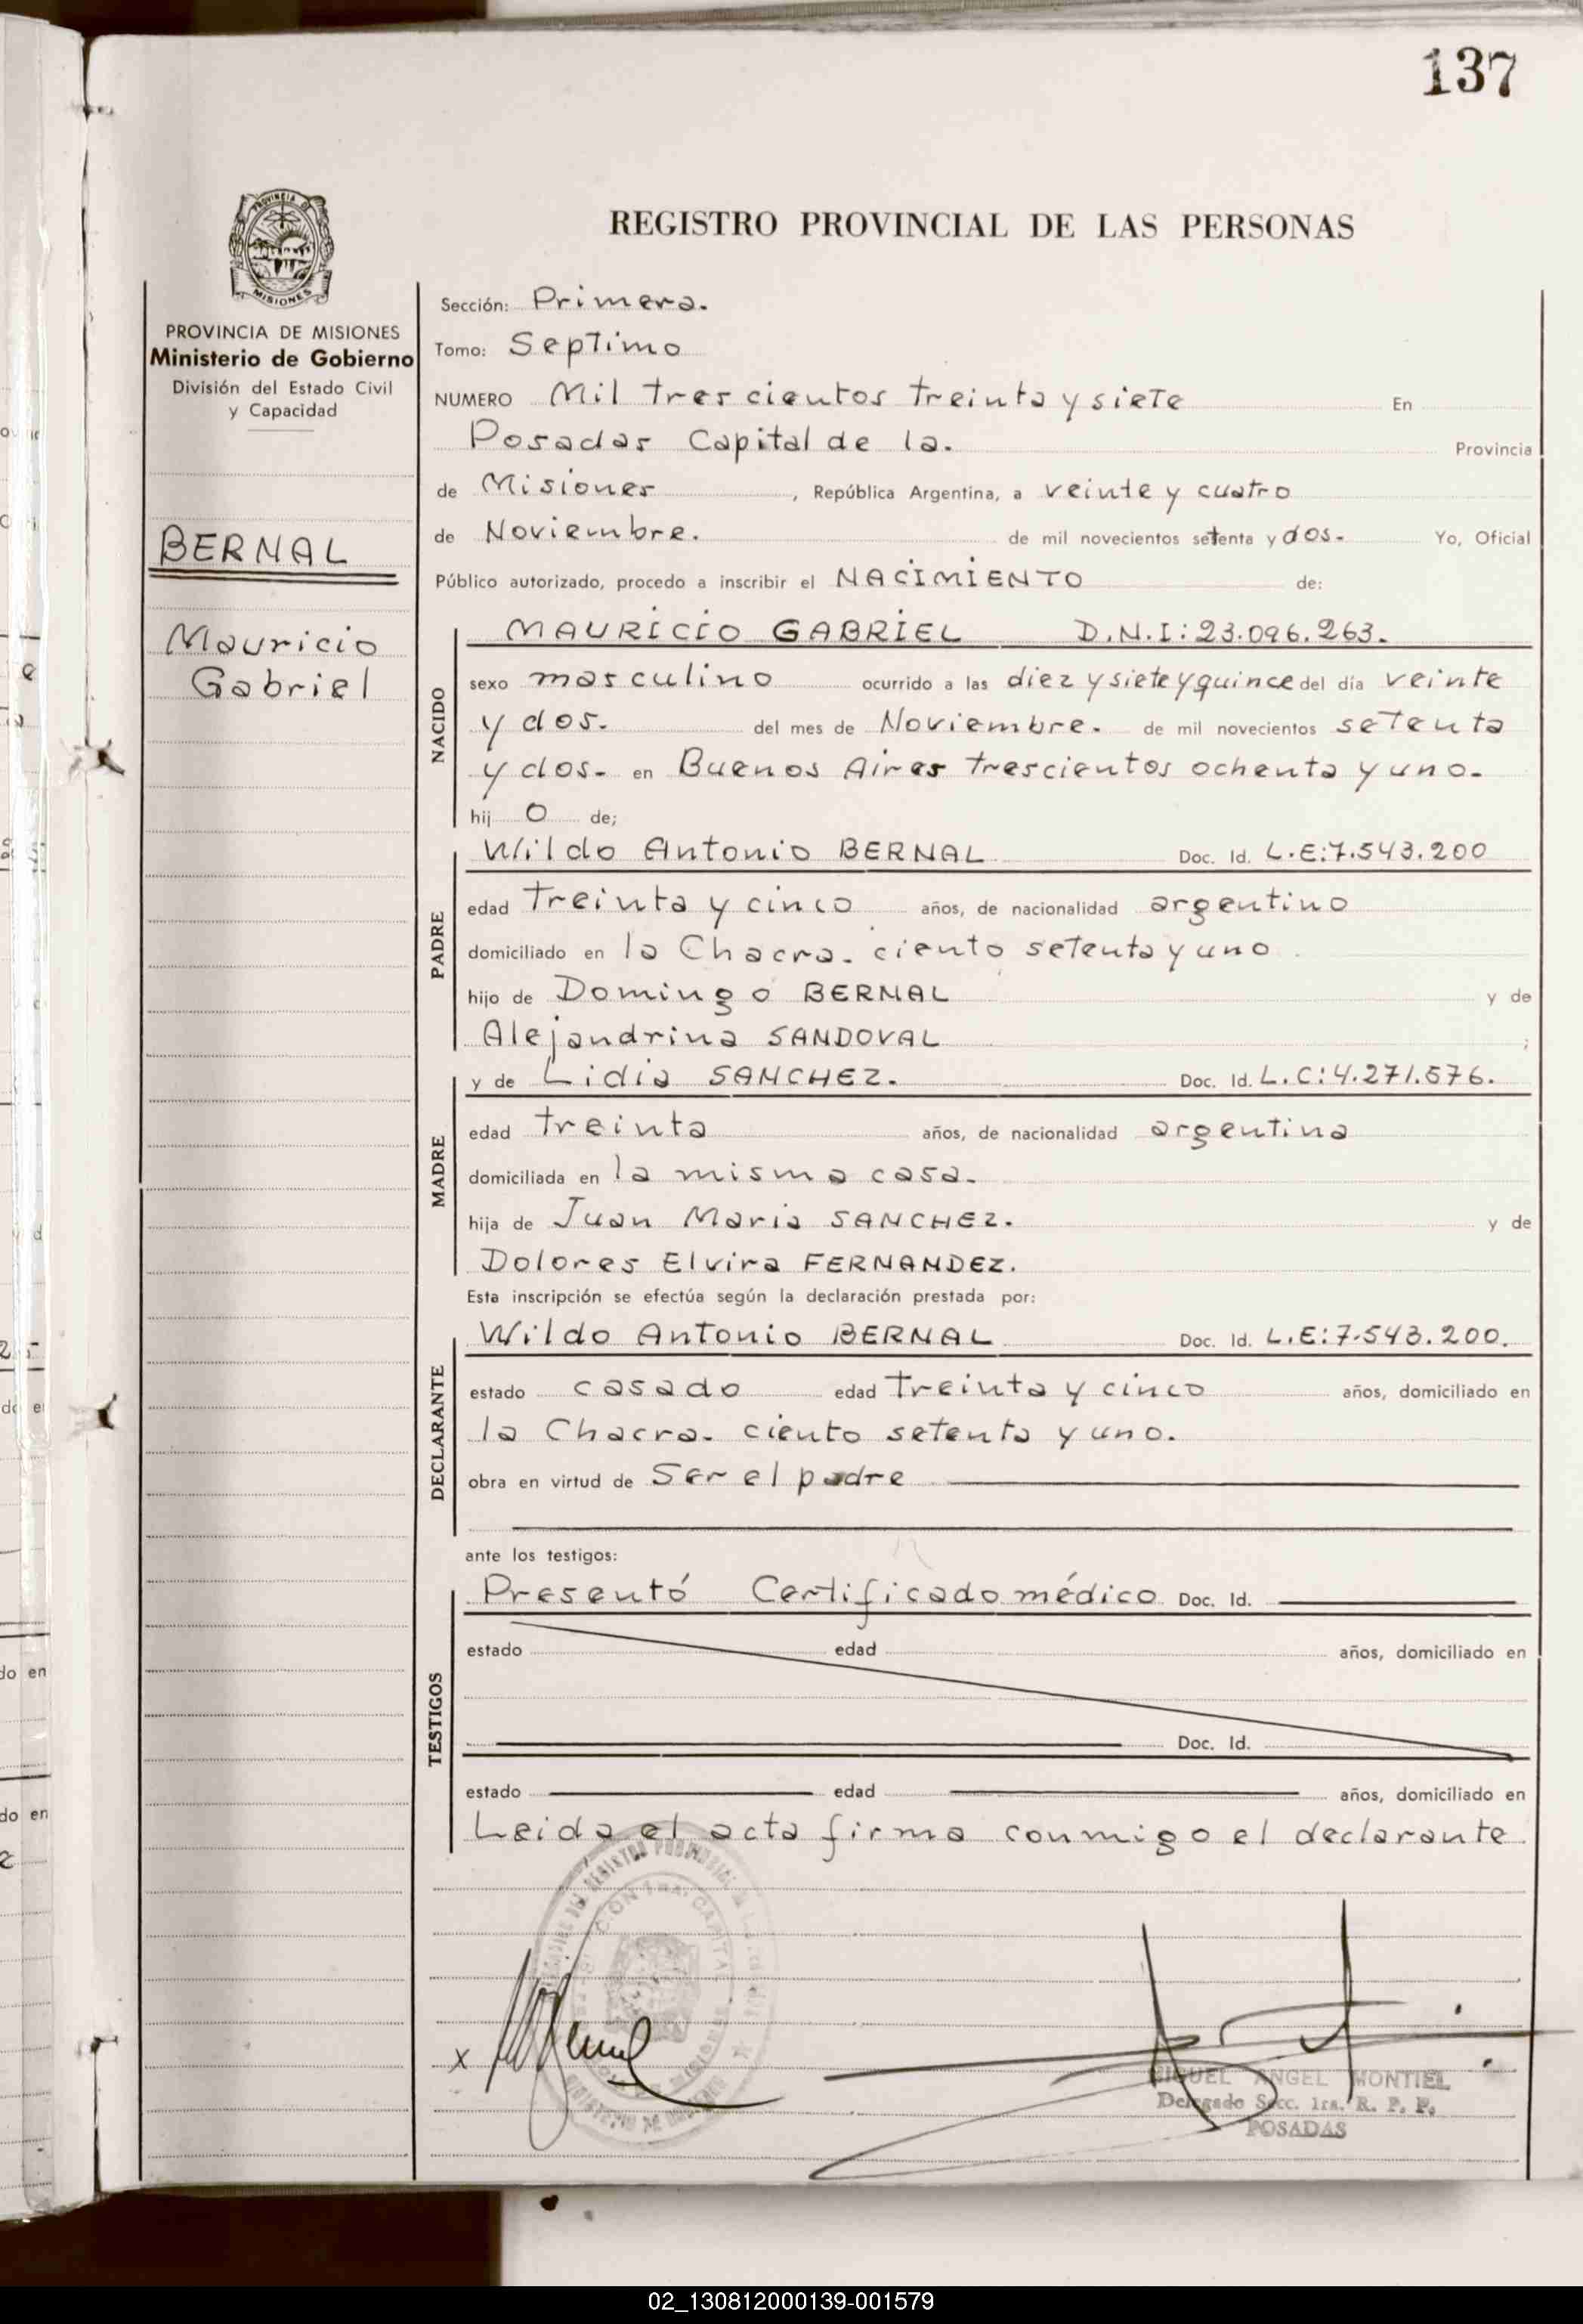 137
PROVINCIA DE
MISIONES
PROVINCIA DE MISIONES
Ministerio de Gobierno
División del Estado Civil
y Capacidad
BERNAL
Mauricio
Gabriel
REGISTRO PROVINCIAL DE LAS PERSONAS
Sección: Primera.
Tomo: Septimo
NUMERO Mil trescientos treinta y siete En
Posadas Capital de la. Provincia
de Misiones, República Argentina, a veinte y cuatro
de Noviembre. de mil novecientos setenta y dos. Yo, Oficial
Público autorizado, procedo a inscribir el NACIMIENTO de:
NACIDO
MAURICIO GABRIEL D.N.I: 23.096.263.
sexo masculino ocurrido a las diez y siete y quince del día veinte
y dos. del mes de Noviembre. de mil novecientos setenta
y dos. en Buenos Aires trescientos ochenta y uno.
hij o de;
PADRE
Wildo Antonio BERNAL Doc. Id. L.E:7.543.200
edad treinta y cinco años, de nacionalidad argentino
domiciliado en la Chacra. ciento setenta y uno.
hijo de Domingo BERNAL y de
Alejandrina SANDOVAL ;
MADRE
y de Lidia SANCHEZ. Doc. Id. L.C:4.271.576.
edad treinta años, de nacionalidad argentina
domiciliada en la misma casa.
hija de Juan Maria SANCHEZ. y de
Dolores Elvira FERNANDEZ.
Esta inscripción se efectúa según la declaración prestada por:
DECLARANTE
Wildo Antonio BERNAL Doc. Id. L.E:7.543.200.
estado casado edad treinta y cinco años, domiciliado en
la Chacra. ciento setenta y uno.
obra en virtud de Ser el padre
ante los testigos:
TESTIGOS
Presentó Certificado médico Doc. Id.
estado edad años, domiciliado en
Doc. Id.
estado edad años, domiciliado en
Leida el acta firma conmigo el declarante
x
MIGUEL ANGEL MONTIEL
Delegado Secc. 1ra. R. P. P.
POSADAS
02_130812000139-001579